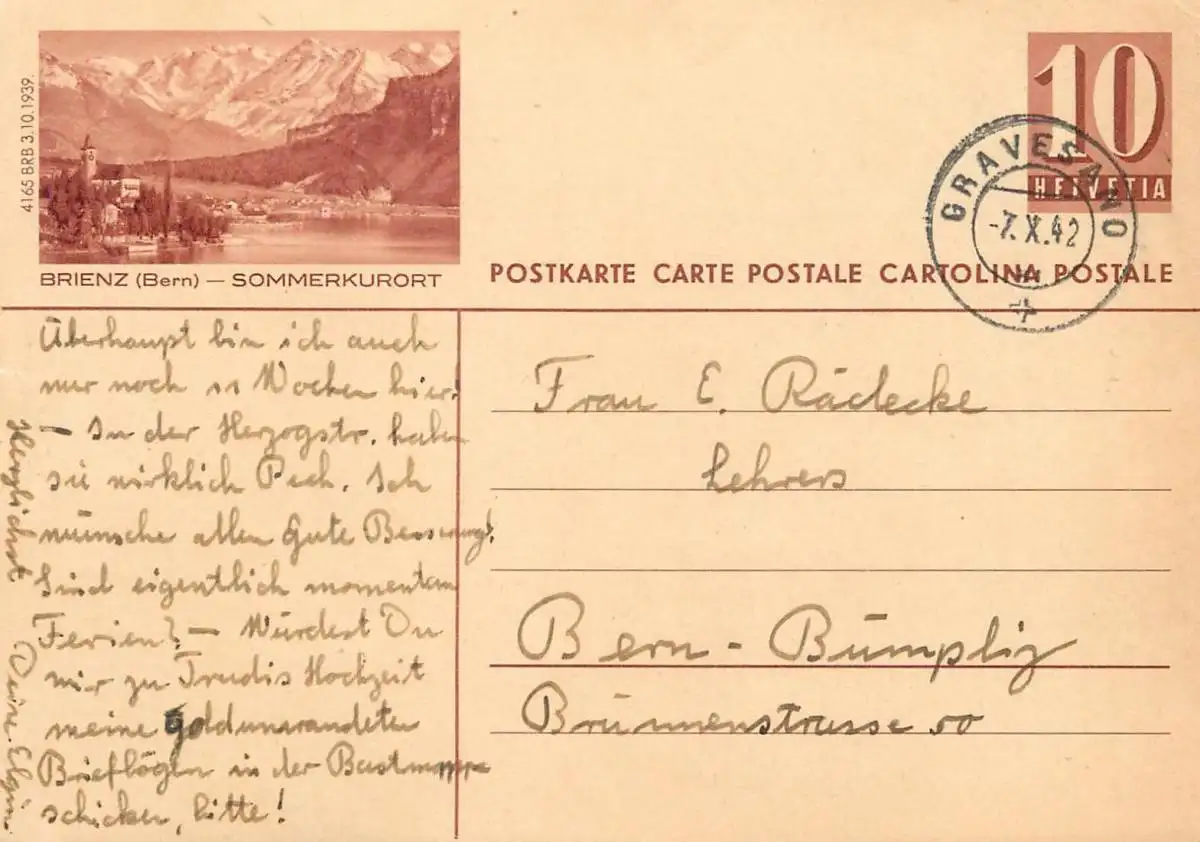 4165 BRB 3.10.1939.
BRIENZ (Bern) — SOMMERKURORT
10
HELVETIA
GRAVESANO
-7.X.42
POSTKARTE CARTE POSTALE CARTOLINA POSTALE
Überhaupt bin ich auch
nur noch 11 Wochen hier!
– In der Herzogstr. haben
sie wirklich Pech. Ich
wünsche allen gute Besserung!
Sind eigentlich momentan
Ferien? – Würdest Du
mir zu Trudis Hochzeit
meine goldumrandeten
Briefbögen in der Bastmappe
schicken, bitte!
Herzlichst Deine
Frau E. Rädecke
Lehrers
Bern - Bümpliz
Brünnenstrasse 50